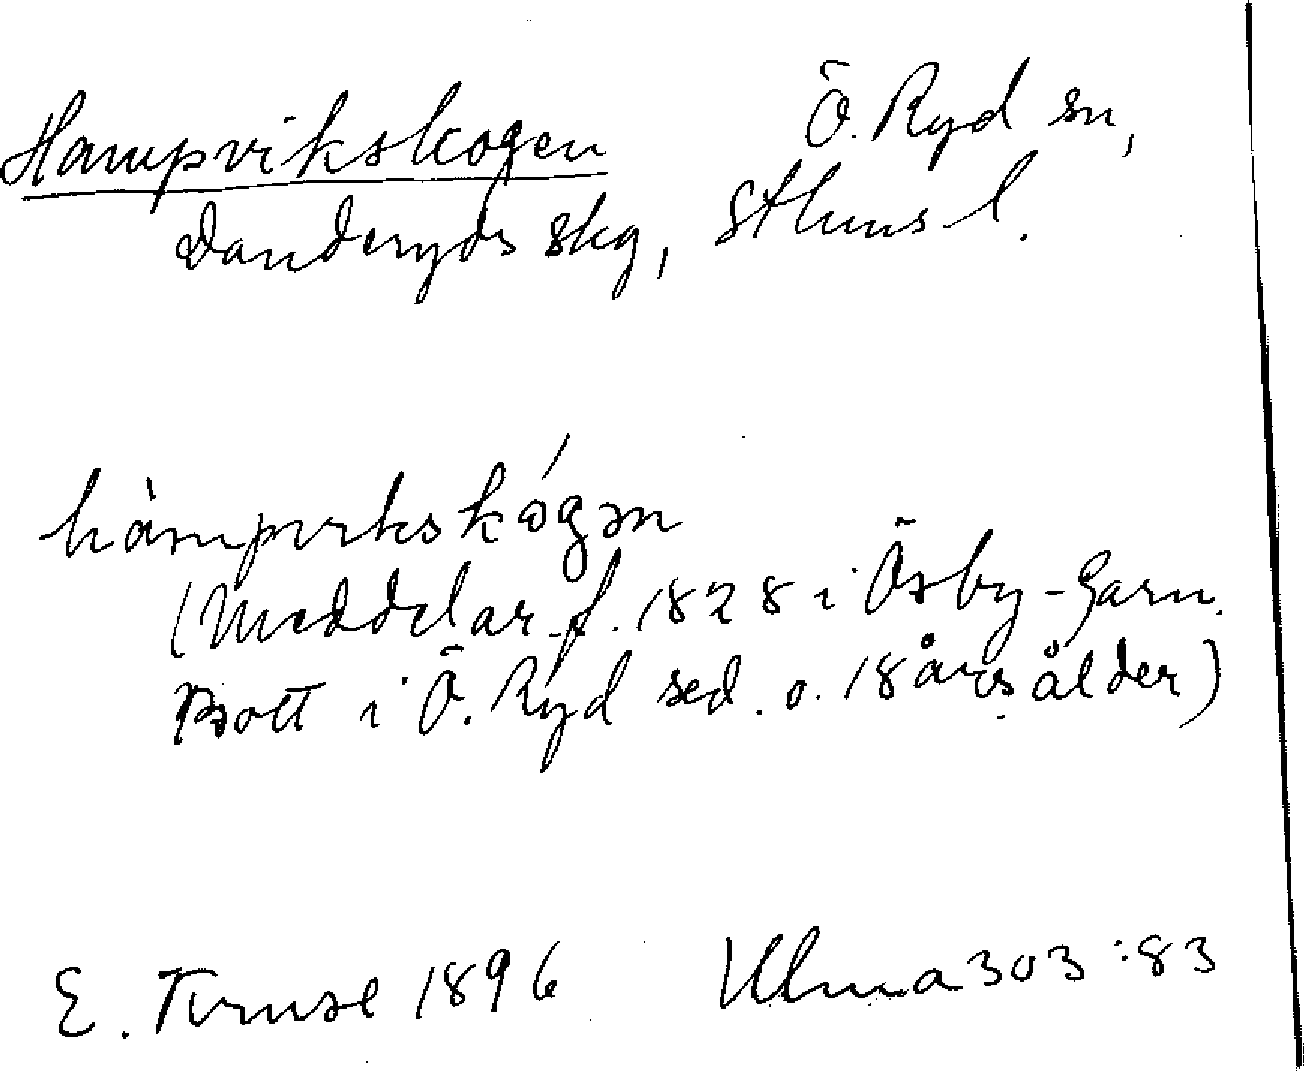 Hampvikskogen Ö. Ryd sn,
Danderyds skg, Sthms l.
hàmpvıkskógən
(Meddelar. f. 1828 i Össby-Garn.
Bott i Ö. Ryd sed. o. 18 års ålder)
E. Kruse 1896 Ulma 303:83